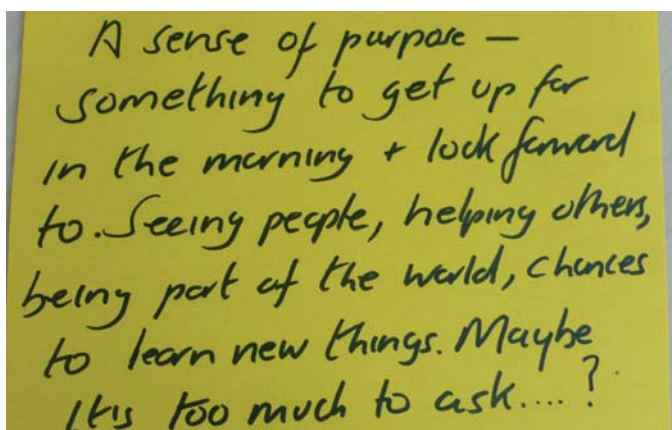 A sense of purpose –
something to get up for
in the morning + look forward
to. Seeing people, helping others,
being part of the world, chances
to learn new things. Maybe
Itis too much to ask....?